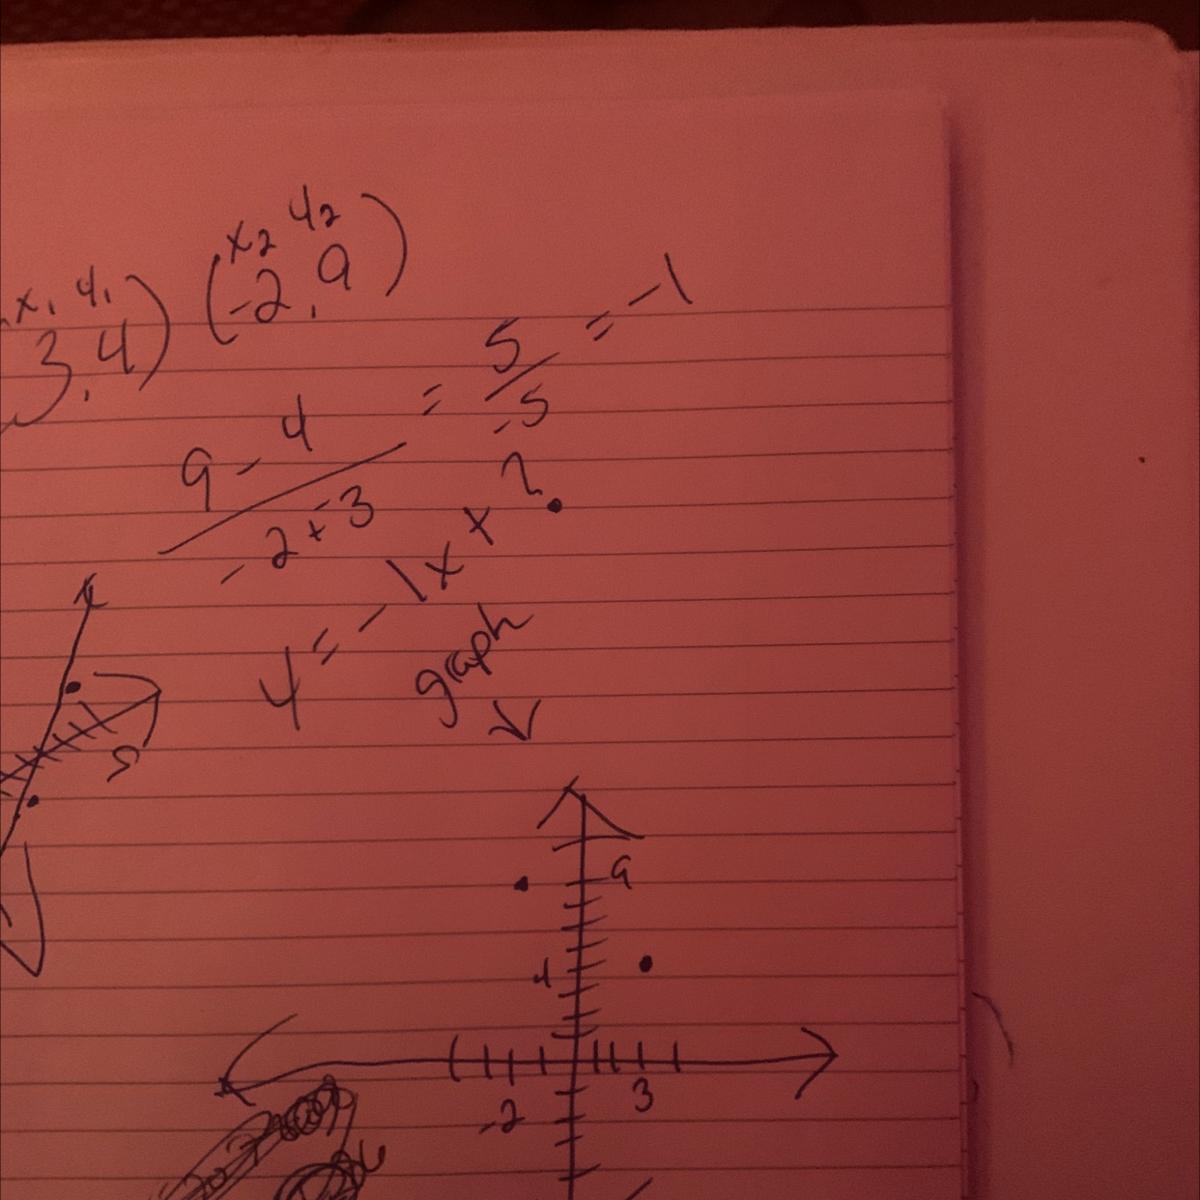 x₁ y₁ x₂ y₂
3, 4) (-2, 9)
9 - 4 / -2 + -3 = 5 / -5 = -1
y = -1x + ?
graph
5
9
4
-2 3